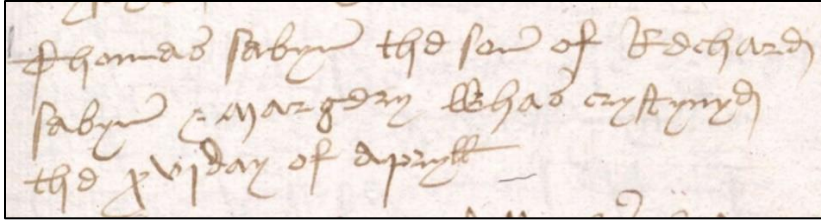 Thomas sabyn the son of Rechard
sabyn & Margery Whas crystynyd
the xvj day of apryll